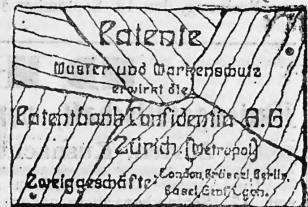 Patente
Muster und Markenschutz
erwirkt die
Patentbank Confidentia A.G.
Zürich (Metropol)
Zweiggeschäfte London, Brüssel, Berlin,
Basel, Genf, Lyon.